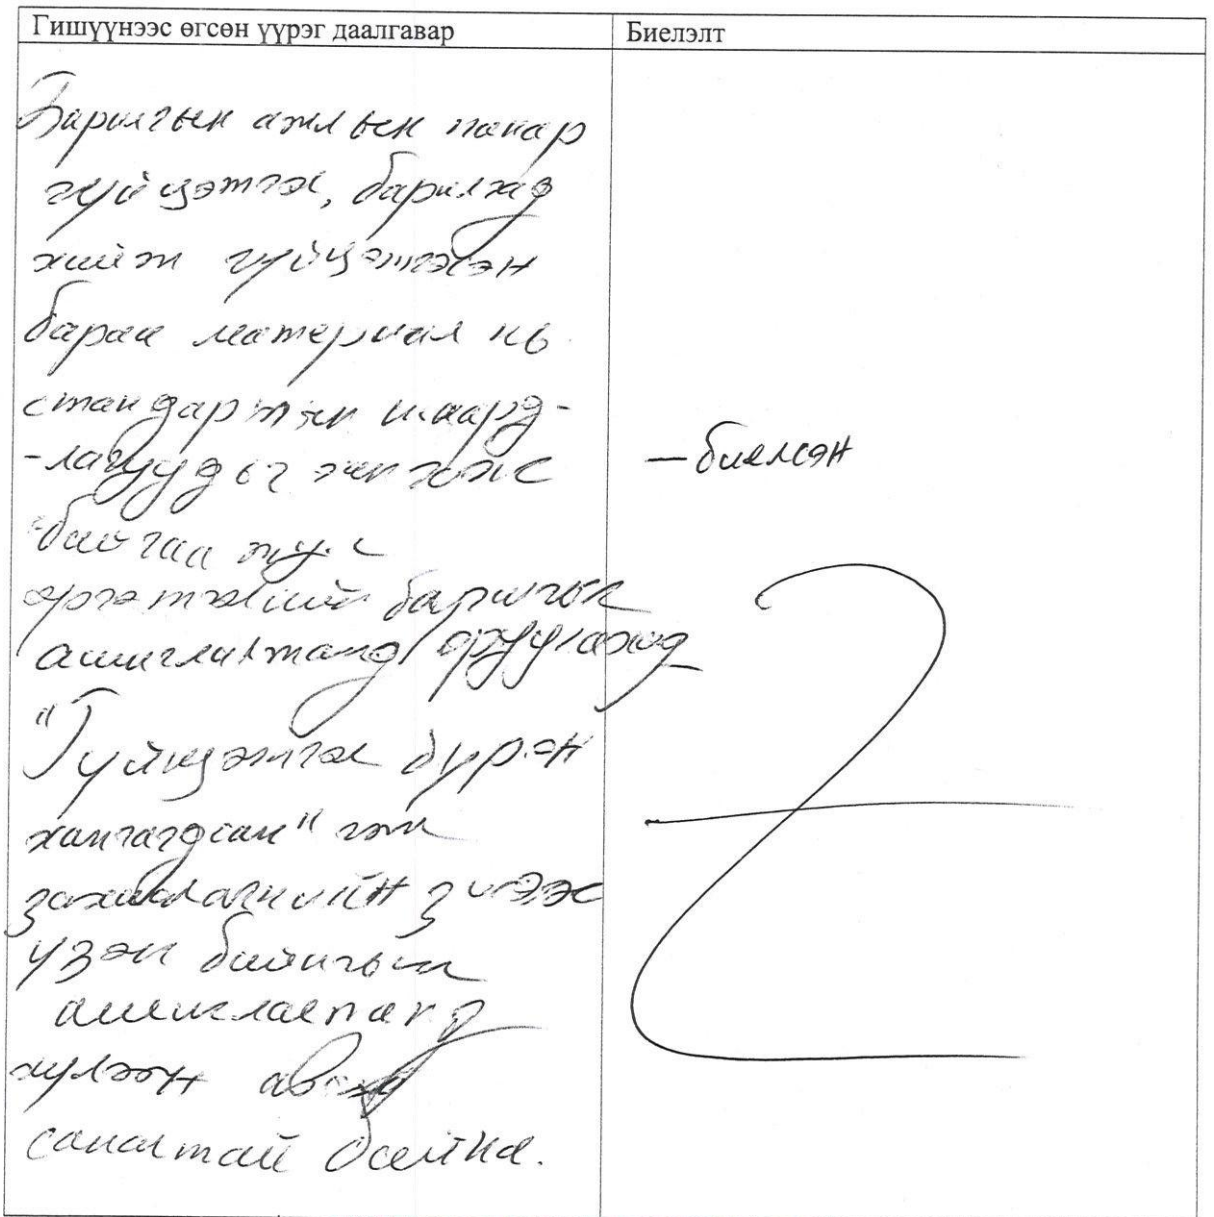 Гишүүнээс өгсөн үүрэг даалгавар
Биелэлт
Барилгын ажлын чанар
гүйцэтгэл, барилгад
хийж гүйцэтгэсэн
бараа материал нь
стандартын шаард-
-лагуудыг хангаж
байгаа тул
өргөтгөлийн барилгыг
ашиглалтанд оруулахад
"Гүйцэтгэл бүрэн
хангагдсан" гэж
захиалагчийн зүгээс
үзэж байгаа
ашиглалтанд
хүлээн авах
саналтай байна.
— биелсэн